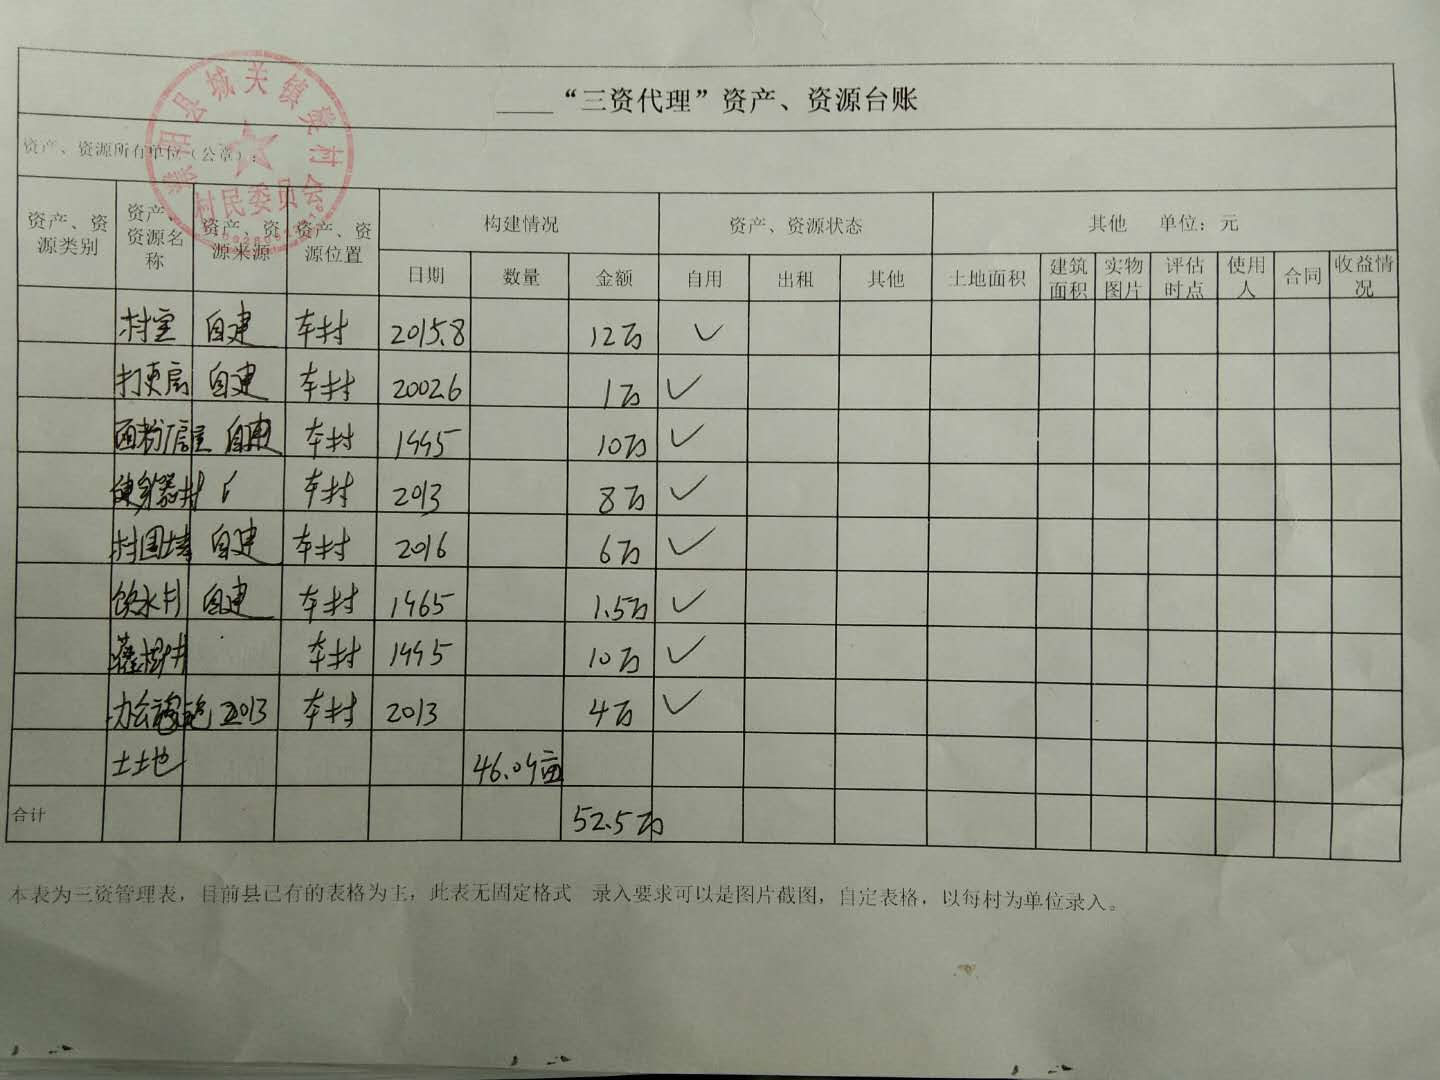 ____“三资代理”资产、资源台账
资产、资源所有单位（公章）：
县城关镇 村
村民委员会
资产、资源类别 资产、资源名称 资产、资源来源 资产、资源位置 构建情况 资产、资源状态 其他 单位：元
日期 数量 金额 自用 出租 其他 土地面积 建筑面积 实物图片 评估时点 使用人 合同 收益情况
村室 自建 本村 2015.8 12万 ✓
打更房 自建 本村 2002.6 1万 ✓
面粉厂房 自建 本村 1995 10万 ✓
健身器材 本村 2013 8万 ✓
村围墙 自建 本村 2016 6万 ✓
饮水井 自建 本村 1965 1.5万 ✓
灌溉井 本村 1995 10万 ✓
办公 2013 本村 2013 4万 ✓
土地 46.09亩
合计 52.5万
本表为三资管理表，目前县已有的表格为主，此表无固定格式 录入要求可以是图片截图，自定表格，以每村为单位录入。